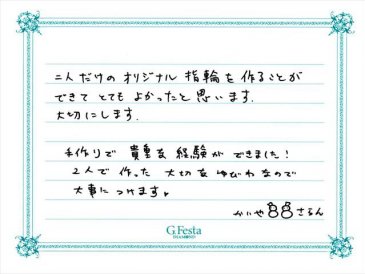 二人だけのオリジナル指輪を作ることが
できてとてもよかったと思います.
大切にします.
手作りで貴重な経験ができました!
2人で作った大切なゆびわなので
大事につけます
かいや さるん
G.Festa
DIAMOND